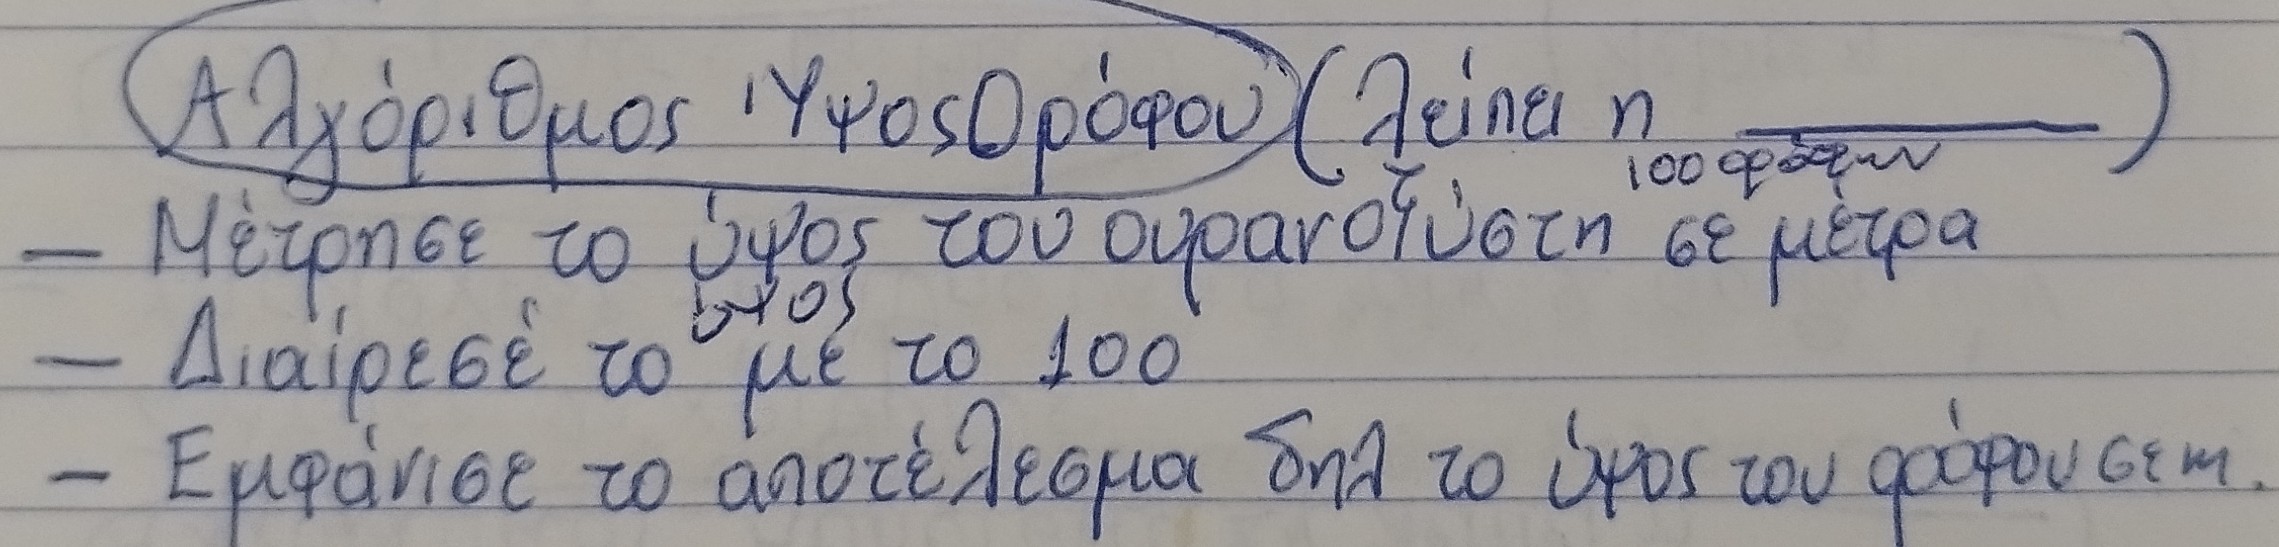 Αλγόριθμος ΎψοςΟρόφου (λείπει η ________)
100 ορόφων
- Μέτρησε το ύψος του ουρανοξύστη σε μέτρα
ύψος
- Διαίρεσέ το με το 100
- Εμφάνισε το αποτέλεσμα δηλ το ύψος του ορόφου σε m.